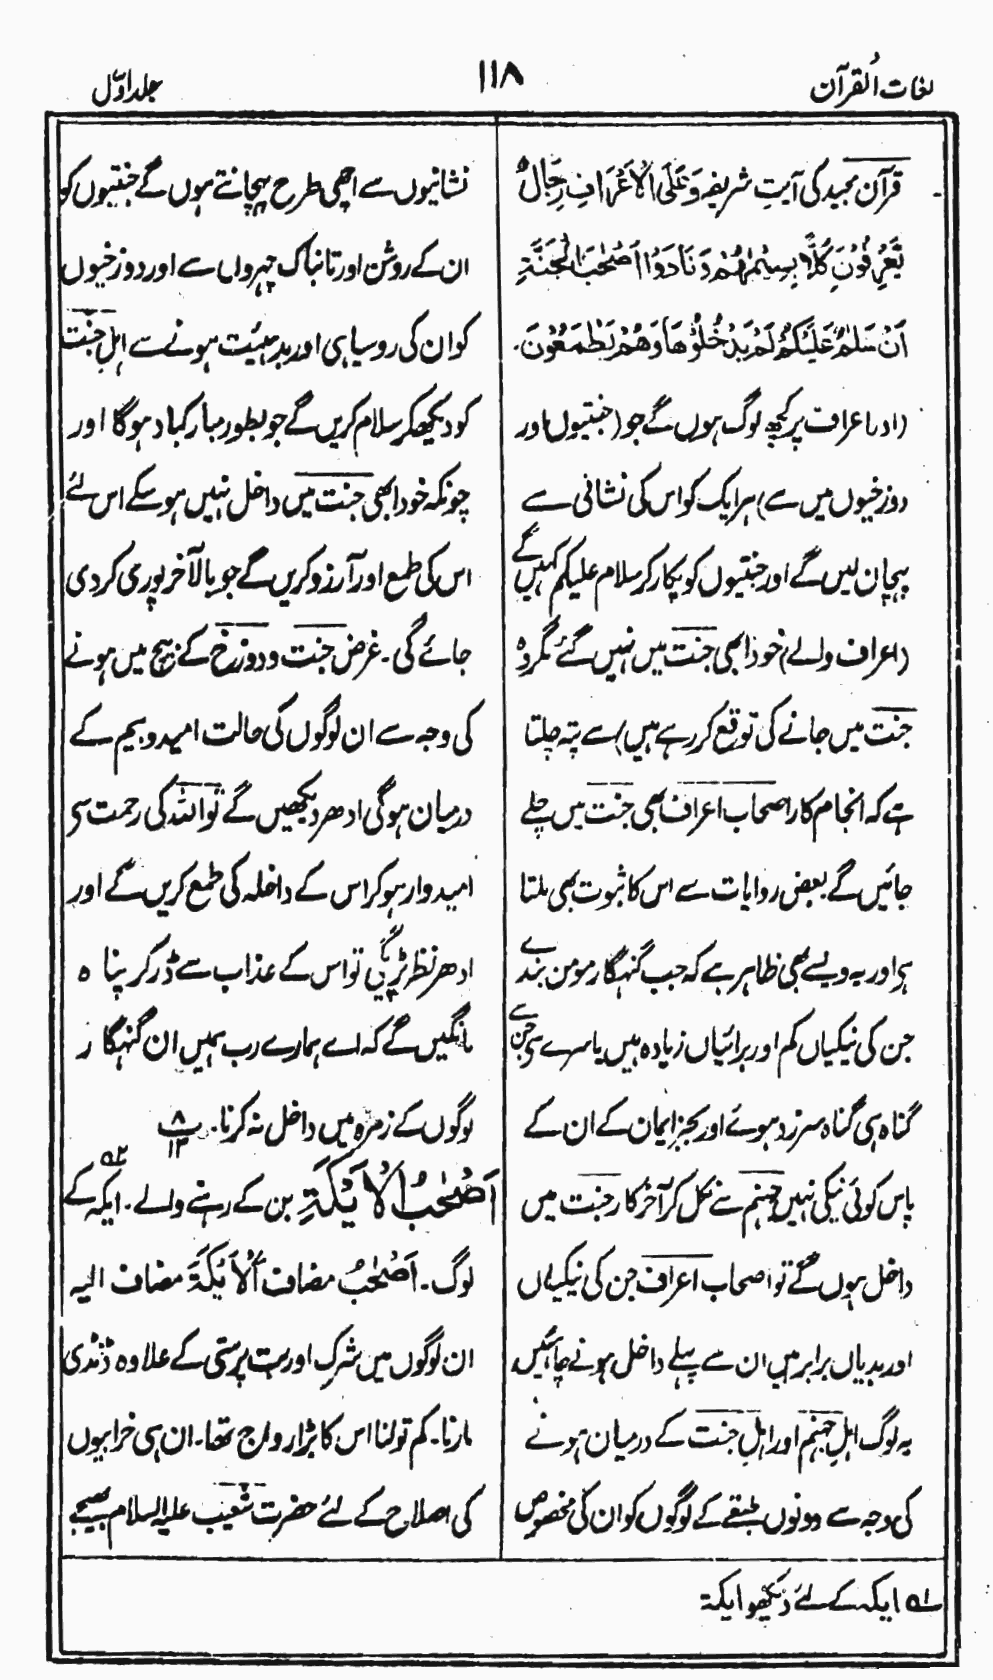 لغات القرآن
۱۱۸
جلد اوّل
قرآن مجید کی آیتِ شریفہ وَعَلَى الْاَعْرَافِ رِجَالٌ
يَّعْرِفُوْنَ كُلًّا بِسِيْمٰهُمْ وَنَادَوْا اَصْحٰبَ الْجَنَّةِ
اَنْ سَلٰمٌ عَلَيْكُمْ لَمْ يَدْخُلُوْهَا وَهُمْ يَطْمَعُوْنَ۔
(اور اعراف پر کچھ لوگ ہوں گے جو (جنتیوں اور
دوزخیوں میں سے) ہر ایک کو اس کی نشانی سے
پہچان لیں گے اور جنتیوں کو پکار کر سلام علیکم کہیں گے
(اعراف والے) خود ابھی جنت میں نہیں گئے مگر وہ
جنت میں جانے کی توقع کر رہے ہیں) سے پتہ چلتا
ہے کہ انجام کار اصحاب اعراف بھی جنت میں چلے
جائیں گے بعض روایات سے اس کا ثبوت بھی ملتا
ہے اور یہ ویسے بھی ظاہر ہے کہ جب گنہگار مومن بندے
جن کی نیکیاں کم اور برائیاں زیادہ ہیں یا سرے سے جن سے
گناہ ہی گناہ سرزد ہوئے اور بجز ایمان کے ان کے
پاس کوئی نیکی نہیں جہنم سے نکل کر آخر کار جنت میں
داخل ہوں گے تو اصحاب اعراف جن کی نیکیاں
اور بدیاں برابر ہیں ان سے پہلے داخل ہونے چاہئیں
یہ لوگ اہلِ جہنم اور اہلِ جنت کے درمیان ہونے
کی وجہ سے دونوں طبقے کے لوگوں کو ان کی مخصوص
نشانیوں سے اچھی طرح پہچانتے ہوں گے جنتیوں کو
ان کے روشن اور تابناک چہروں سے اور دوزخیوں
کو ان کی روسیاہی اور بدہیئت ہونے سے اہلِ جنت
کو دیکھکر سلام کریں گے جو بطور مبارکباد ہوگا اور
چونکہ خود ابھی جنت میں داخل نہیں ہو سکے اس لئے
اس کی طمع اور آرزو کریں گے جو بالآخر پوری کر دی
جائے گی۔ غرض جنت و دوزخ کے بیچ میں ہونے
کی وجہ سے ان لوگوں کی حالت امید و بیم کے
درمیان ہوگی ادھر دیکھیں گے تو اللہ کی رحمت سے
امیدوار ہو کر اس کے داخلہ کی طمع کریں گے اور
ادھر نظر پڑیگی تو اس کے عذاب سے ڈر کر پناہ
مانگیں گے کہ اے ہمارے رب ہمیں ان گنہگار
لوگوں کے زمرہ میں داخل نہ کرنا۔ ۸/۱۲
اَصْحٰبُ الْاَيْكَةِ بن کے رہنے والے۔ ایکہ کے
لوگ۔ اَصْحٰبُ مضاف اَلْاَيْكَةِ مضاف الیہ
ان لوگوں میں شرک اور بت پرستی کے علاوہ ڈنڈی
مارنا۔ کم تولنا اس کا بڑا رواج تھا۔ ان ہی خرابیوں
کی اصلاح کے لئے حضرت شعیب علیہ السلام بھیجے
ایکہ کے لئے دیکھو ایکة